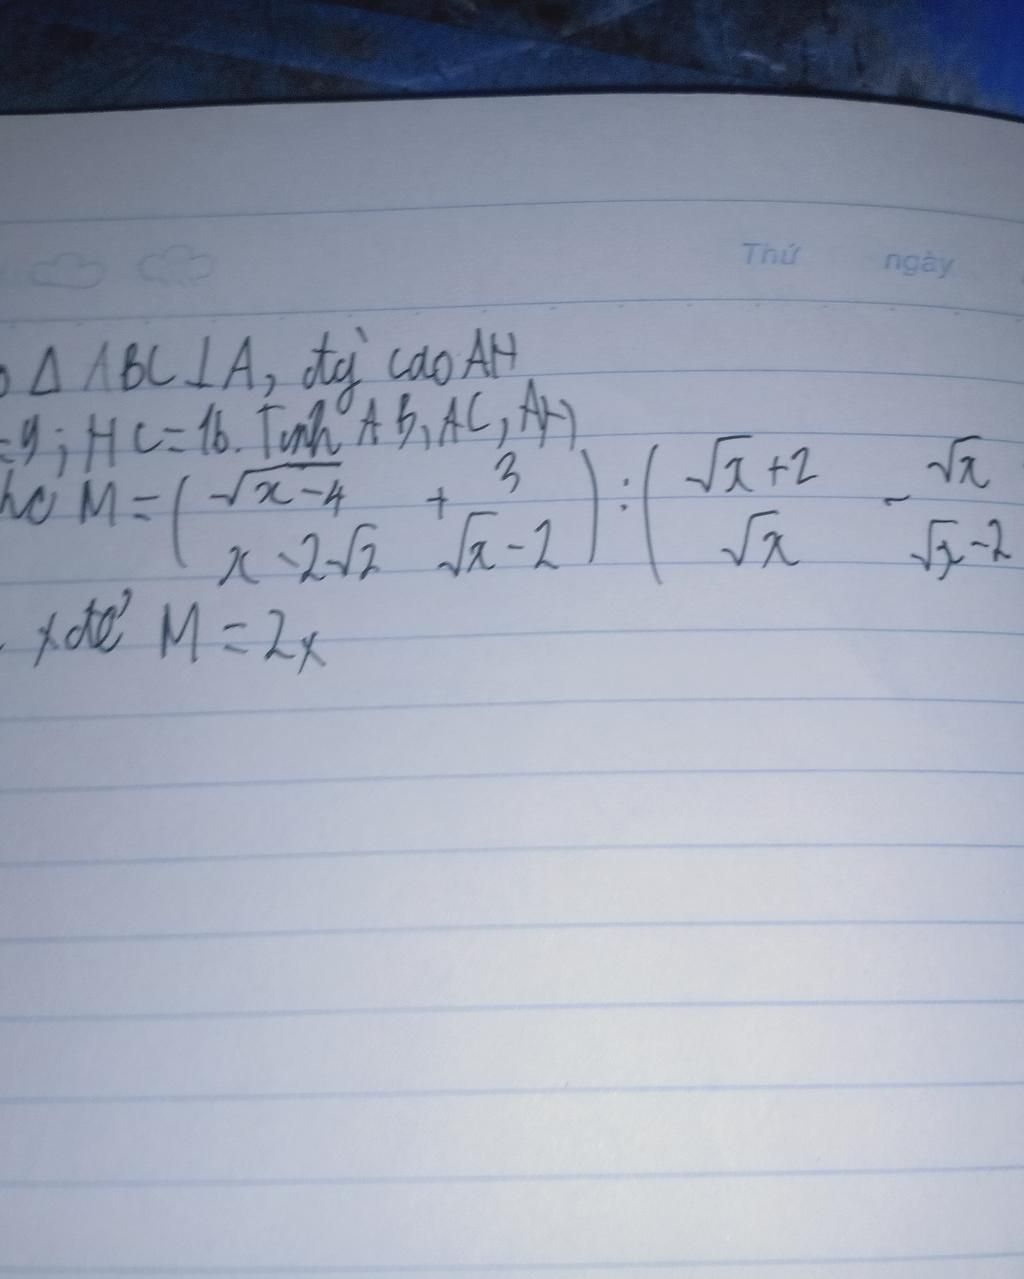 Thứ ngày
Δ ABC ⊥ A, đg` cao AH
=9; HC=16. Tính AB, AC, AH
M = ( √x-4 / x-2√2 + 3 / √x-2 ) : ( √x+2 / √x - √x / √x-2
x để M = 2x